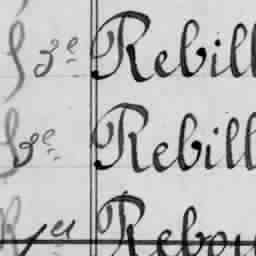 3e Rebill
3e Rebill
Rebou